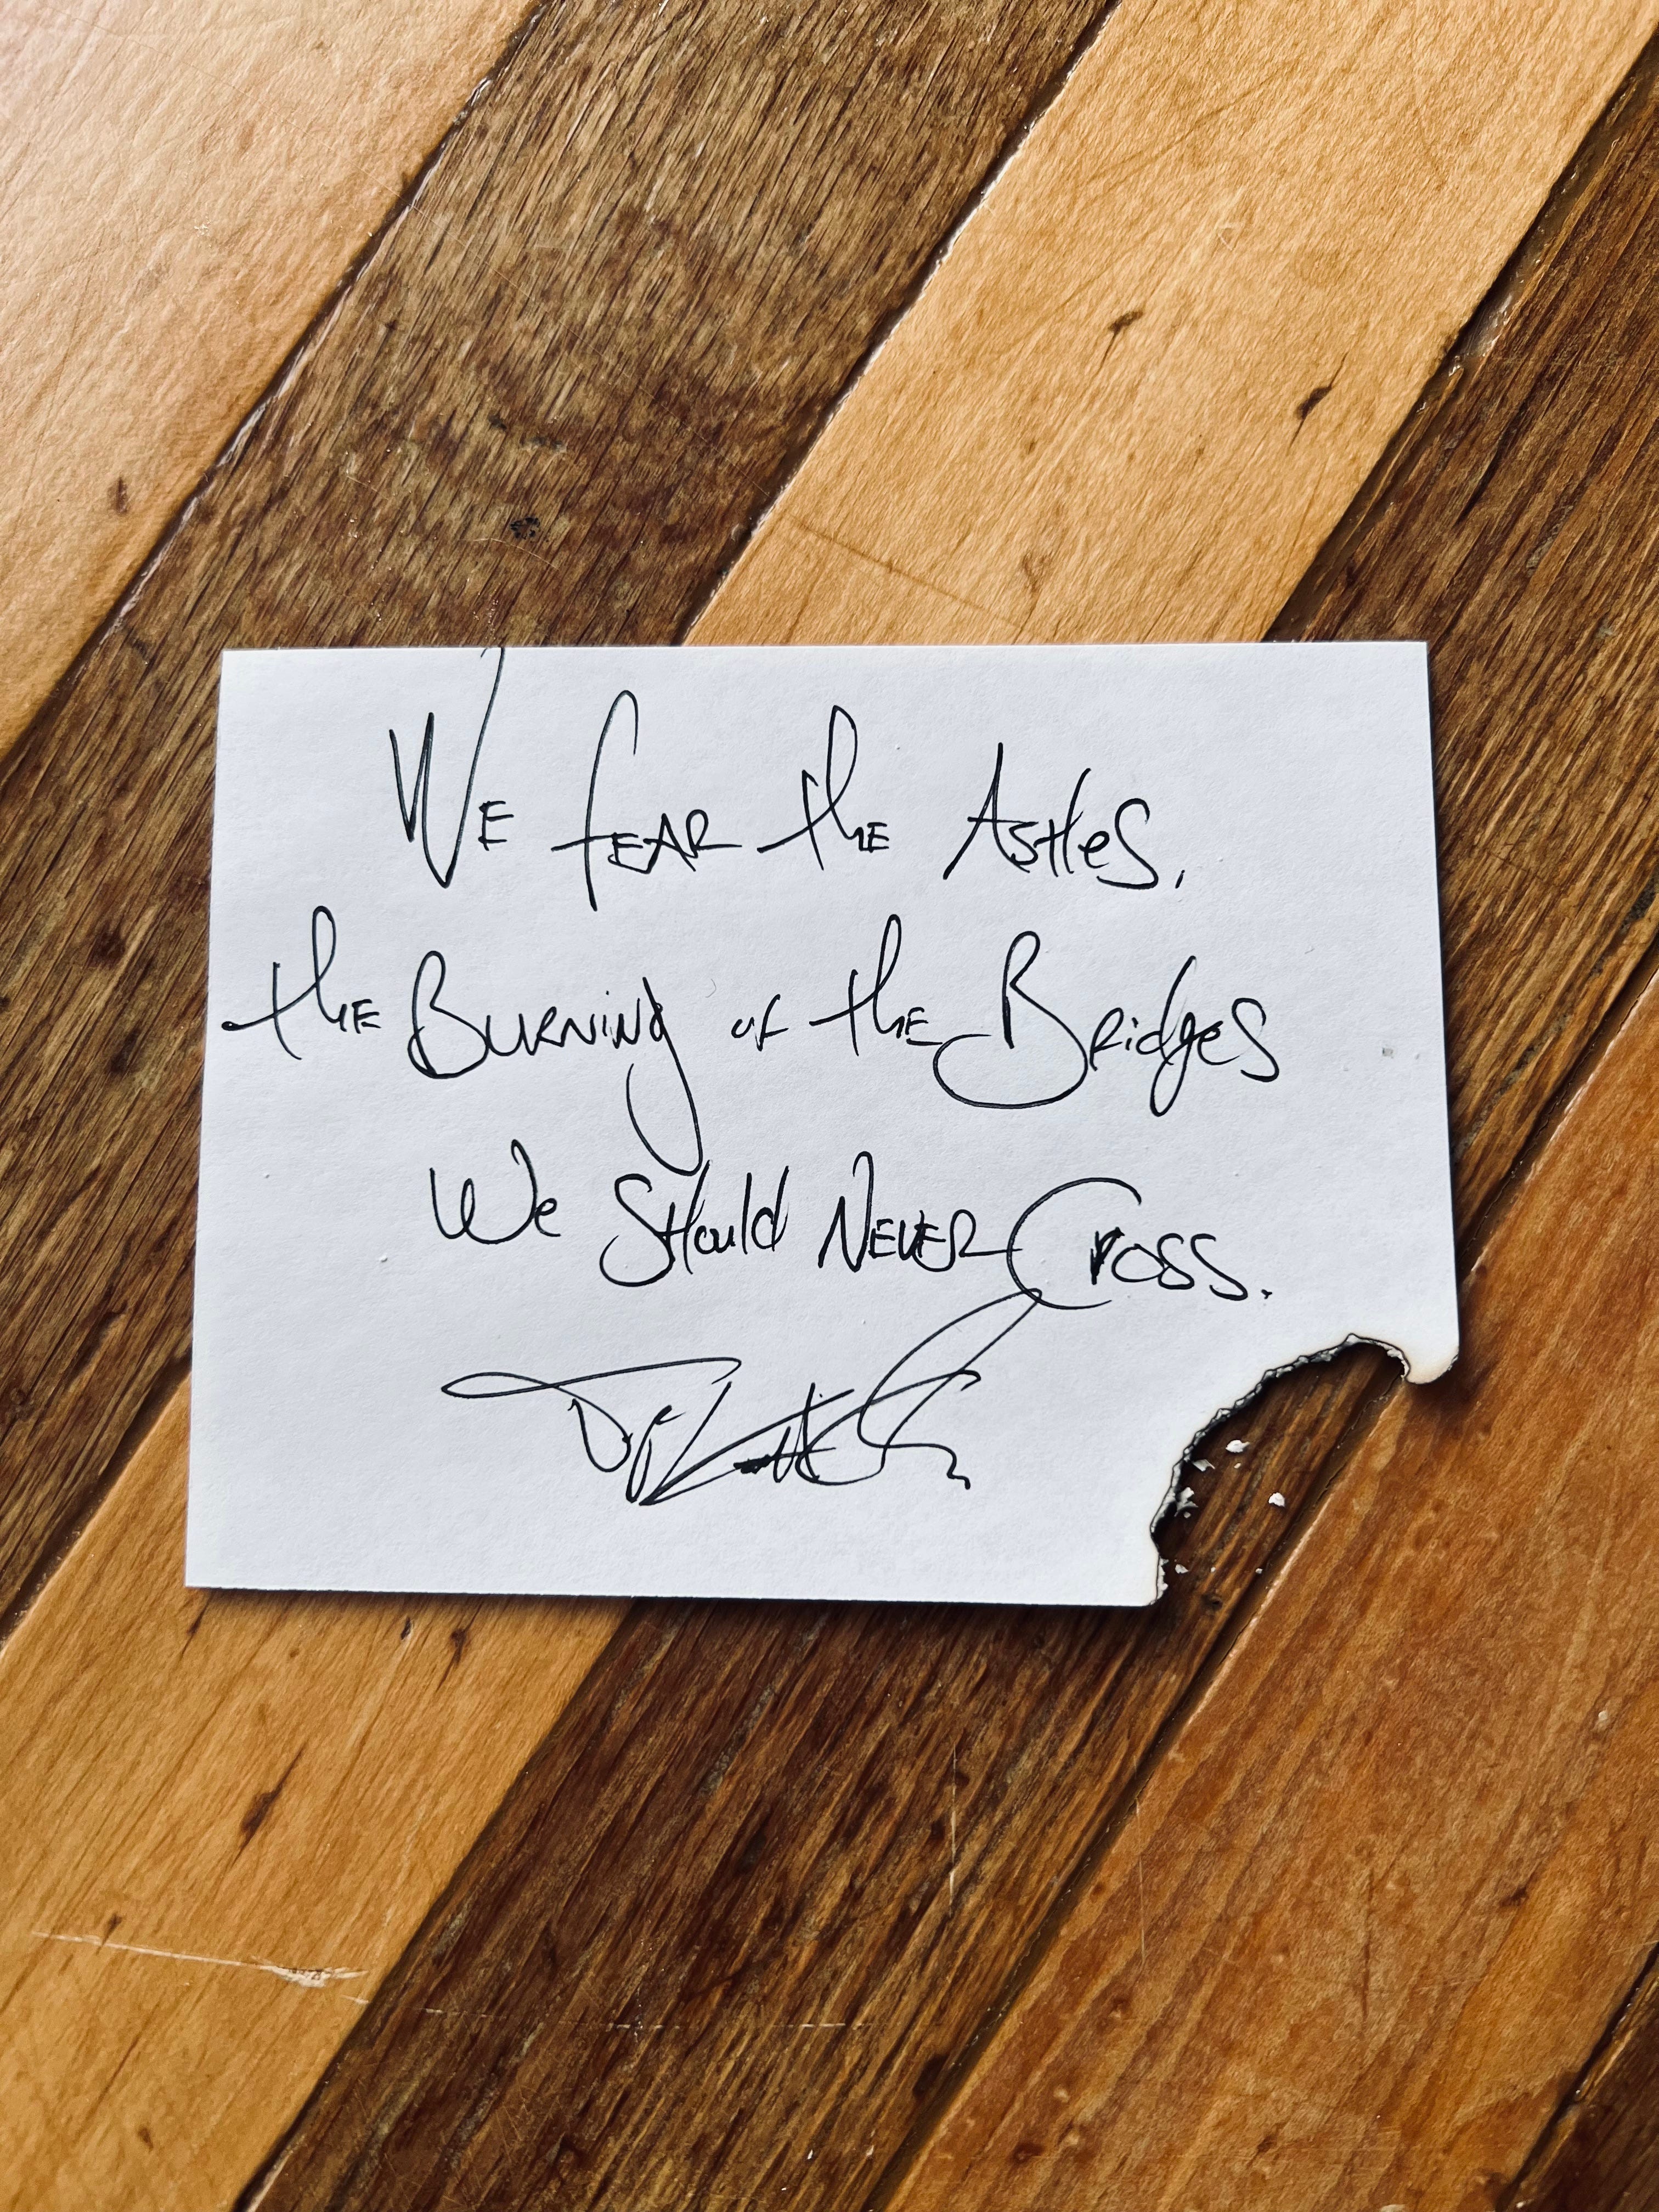 We fear the Ashes,
the Burning of the Bridges
We Should Never Cross.